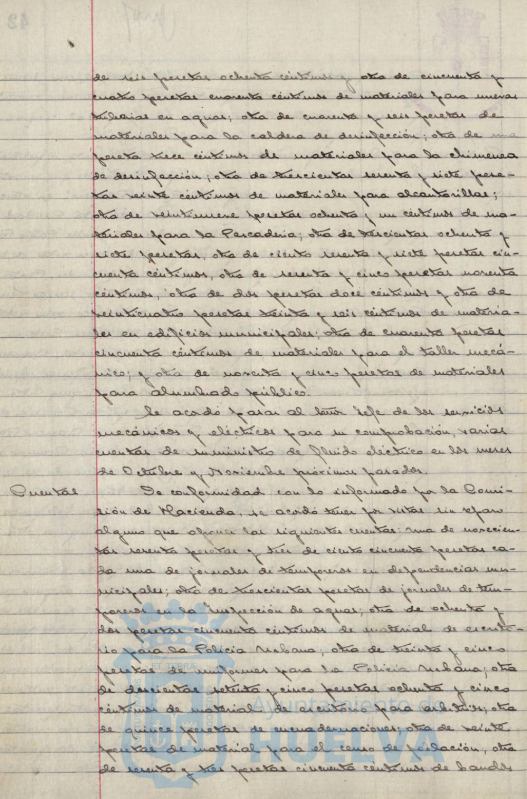 de seis pesetas ochenta céntimos y otra de cincuenta y
cuatro pesetas cuarenta céntimos de materiales para nuevas
tuberias en aguas; otra de cuarenta y seis pesetas de
materiales para la caldera de desinfección; otra de una
peseta trece céntimos de materiales para la chimenea
de desinfección; otra de trescientas sesenta y siete pese-
tas veinte céntimos de materiales para alcantarillas;
otra de veintinueve pesetas ochenta y un céntimos de ma-
teriales para la Pescaderia; otra de trescientas ochenta y
siete pesetas, otra de ciento sesenta y siete pesetas cin-
cuenta céntimos, otra de sesenta y cinco pesetas noventa
céntimos, otra de dos pesetas doce céntimos y otra de
veinticuatro pesetas treinta y seis céntimos de materia-
les en edificios municipales; otra de cuarenta pesetas
cincuenta céntimos de materiales para el taller mecá-
nico; y otra de noventa y cinco pesetas de materiales
para alumbrado público.
Se acordó pasar al Señor Jefe de los servicios
mecánicos y eléctricos para su comprobación, varias
cuentas de suministro de fluido eléctrico en los meses
de Octubre y Noviembre próximos pasados.
Cuentas De conformidad con lo informado por la Comi-
sión de Hacienda, se acordó tener por vistas sin reparo
alguno que oponer las siguientes cuentas: una de novecien-
tas sesenta pesetas y tres de ciento cincuenta pesetas ca-
da una de jornales de temporeros en dependencias mu-
nicipales; otra de trescientas pesetas de jornales de tem-
poreros en la inspección de aguas; otra de ochenta y
dos pesetas cincuenta céntimos de material de escrito-
rio para la Policía Urbana, otra de treinta y cinco
pesetas de uniformes para la Policía Urbana; otra
de doscientas setenta y cinco pesetas ochenta y cinco
céntimos de material de escritorio para arbitrios; otra
de quince pesetas de encuadernaciones; otra de veinte
pesetas de material para el censo de población, otra
de sesenta y tres pesetas cincuenta céntimos de bandos
Ayuntamiento de
HUELVA